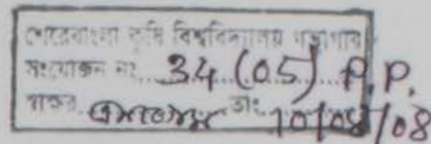 শেরেবাংলা কৃষি বিশ্ববিদ্যালয় গন্থাগার
সংযোজন নং 34 (05) P.P.
স্বাক্ষর তাং 10/08/08